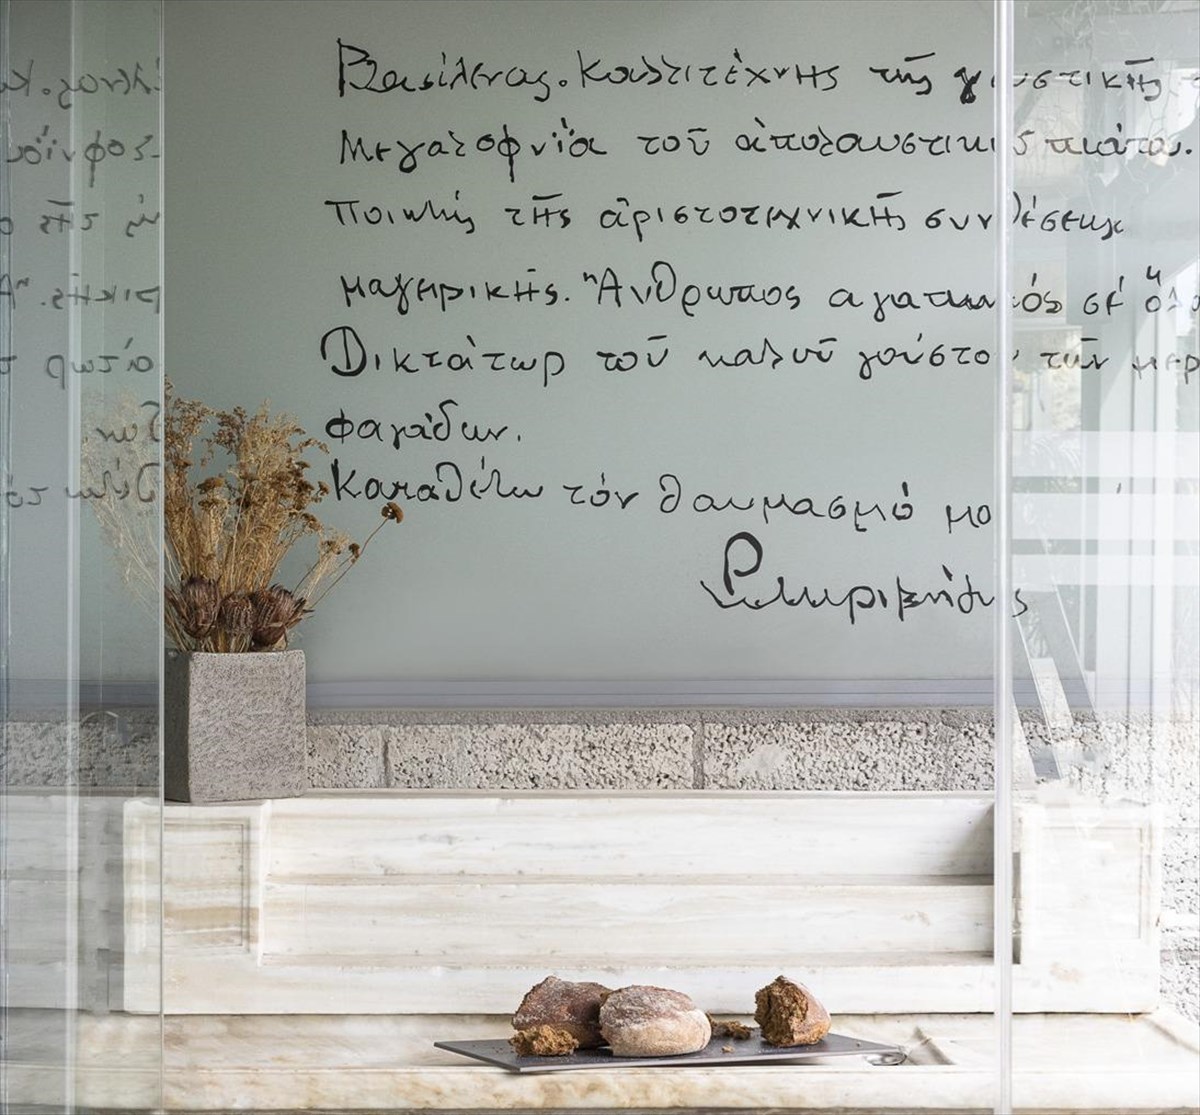 Βασίλαινας. Καλλιτέχνης τῆς γευστικῆς
Μεγαλοφυΐα τοῦ ἀπολαυστικοῦ πιάτου.
Ποιητής τῆς ἀριστοτεχνικῆς συνθέσεως
μαγειρικῆς. Ἄνθρωπος αγαπητός σέ ὅλους
Δικτάτωρ τοῦ καλοῦ γούστου τῶν μερ
φαγάδων.
Καταθέτω τόν θαυμασμό μο